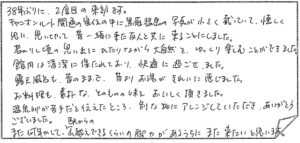 38年ぶりに、2度目の来訪です。
キャニオンルート関連の雑誌の中に黒薙温泉の写真が小さく載っていて、懐しく
思い、思いきって昔一緒に来た友と共に来ることにしました。
若かりし頃の思い出にひたりながら大自然と、ゆっくり楽しむことができました。
館内は清潔に保たれており、快適に過ごせました。
露天風呂も昔のままで、皆りお湯がきれいに感じました。
お料理も、素朴な、そのものの味をおいしく頂きました。
温泉卵が苦手だと伝えたところ、別な物にアレンジしていただき、ありがとう
ございました。 駅からの
また何年かして、山越えできるくらいの脚力があるうちにまた来たいと思います。